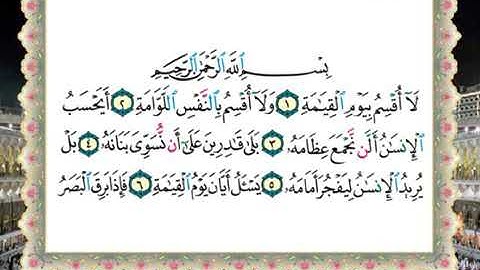 بِسْمِ اللَّهِ الرَّحْمَٰنِ الرَّحِيمِ
لَآ أُقْسِمُ بِيَوْمِ الْقِيَـٰمَةِ ١ وَلَآ أُقْسِمُ بِالنَّفْسِ اللَّوَّامَةِ ٢ أَيَحْسَبُ
الْإِنسَـٰنُ أَلَّن نَّجْمَعَ عِظَامَهُۥ ٣ بَلَىٰ قَـٰدِرِينَ عَلَىٰٓ أَن نُّسَوِّىَ بَنَانَهُۥ ٤ بَلْ
يُرِيدُ الْإِنسَـٰنُ لِيَفْجُرَ أَمَامَهُۥ ٥ يَسْـَٔلُ أَيَّانَ يَوْمُ الْقِيَـٰمَةِ ٦ فَإِذَا بَرِقَ الْبَصَرُ